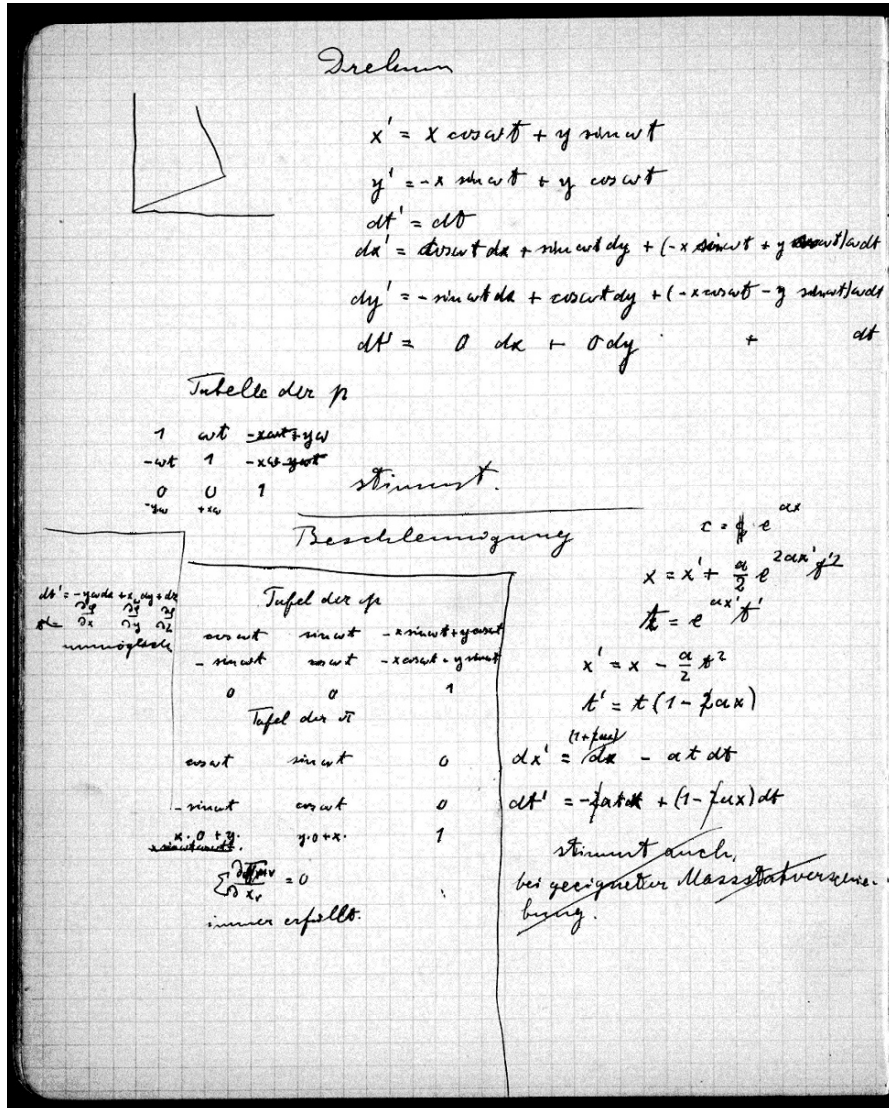 Drehung
x' = x cos ωt + y sin ωt
y' = -x sin ωt + y cos ωt
dt' = dt
dx' = cos ωt dx + sin ωt dy + (-x sin ωt + y cos ωt) ω dt
dy' = - sin ωt dx + cos ωt dy + (-x cos ωt - y sin ωt) ω dt
dt' = 0 dx + 0 dy + dt
Tabelle der p
1 ωt -xωt + yω
-ωt 1 -xω - yωt
0 0 1
-yω +xω
stimmt.
Beschleunigung
dt' = -yω dx + xω dy + dt
∂φ/∂x ∂φ/∂y ∂φ/∂z
unmöglich
Tafel der p
cos ωt sin ωt -x sin ωt + y cos ωt
- sin ωt cos ωt -x cos ωt - y sin ωt
0 0 1
Tafel der π
cos ωt sin ωt 0
- sin ωt cos ωt 0
x · 0 + y · y · 0 + x · 1
= 0
immer erfüllt.
e^{αx}
x = x' + α/2 e^{2αx'} t'²
t = e^{αx'} t'
x' = x - α/2 t²
t' = t (1 - αx)
dx' = dx - αt dt
dt' = -αt dx + (1 - αx) dt
stimmt auch,
bei geeigneter Massstabverschie-
bung.